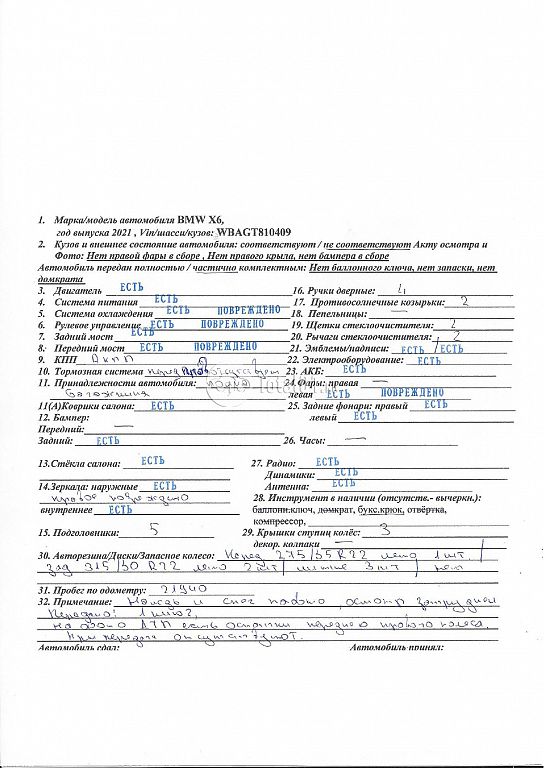 1. Марка/модель автомобиля BMW X6,
год выпуска 2021 , Vin/шасси/кузов: WBAGT810409
2. Кузов и внешнее состояние автомобиля: соответствуют / не соответствуют Акту осмотра и
Фото: Нет правой фары в сборе , Нет правого крыла, нет бампера в сборе
Автомобиль передан полностью / частично комплектным: Нет баллонного ключа, нет запаски, нет
домкрата
3. Двигатель ЕСТЬ 16. Ручки дверные: 4
4. Система питания ЕСТЬ 17. Противосолнечные козырьки: 2
5. Система охлаждения ЕСТЬ ПОВРЕЖДЕНО 18. Пепельницы: —
6. Рулевое управление ЕСТЬ ПОВРЕЖДЕНО 19. Щетки стеклоочистителя: 2
7. Задний мост ЕСТЬ 20. Рычаги стеклоочистителя: 2
8. Передний мост ЕСТЬ ПОВРЕЖДЕНО 21. Эмблемы/надписи: ЕСТЬ / ЕСТЬ
9. КПП АКПП 22. Электрооборудование: ЕСТЬ
10. Тормозная система перед 23. АКБ: ЕСТЬ
11. Принадлежности автомобиля: 24. Фары: правая —
левая ЕСТЬ ПОВРЕЖДЕНО
11(А)Коврики салона: ЕСТЬ 25. Задние фонари: правый ЕСТЬ
12. Бампер: левый ЕСТЬ
Передний: —
Задний: ЕСТЬ 26. Часы: —
13.Стёкла салона: ЕСТЬ 27. Радио: ЕСТЬ
Динамики: ЕСТЬ
14.Зеркала: наружные ЕСТЬ Антенна: ЕСТЬ
правое повреждено 28. Инструмент в наличии (отсутств.- вычеркн.):
внутреннее ЕСТЬ баллонн.ключ, домкрат, букс.крюк, отвёртка,
компрессор,
15. Подголовники: 5 29. Крышки ступиц колёс: 3
декор. колпаки —
30. Авторезина/Диски/Запасное колесо: Перед 275/35 R22 лето 1 шт.
зад 315/30 R22 лето 2 шт / литые 3 шт / нет
31. Пробег по одометру: 21940
32. Примечание: осмотр
Передано: 1 ключ.
ДТП есть остатки переднего правого колеса.
При передаче отсутствуют.
Автомобиль сдал: Автомобиль принял: